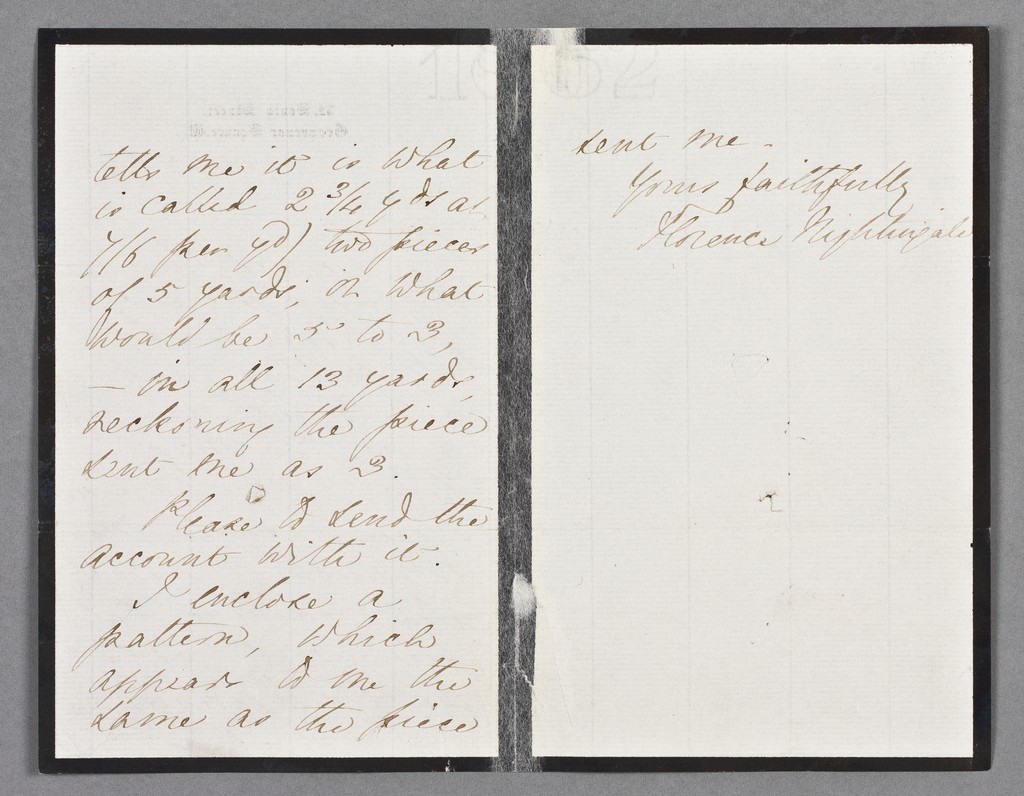 tells me it is what
is called 2 3/4 yds at
7/6 per yd) two pieces
of 5 yards, or what
would be 5 to 3,
— in all 13 yards,
reckoning the piece
sent me as 3.
Please to send the
account with it.
I enclose a
pattern, which
appears to me the
same as the piece
sent me -
Yours faithfully
Florence Nightingale